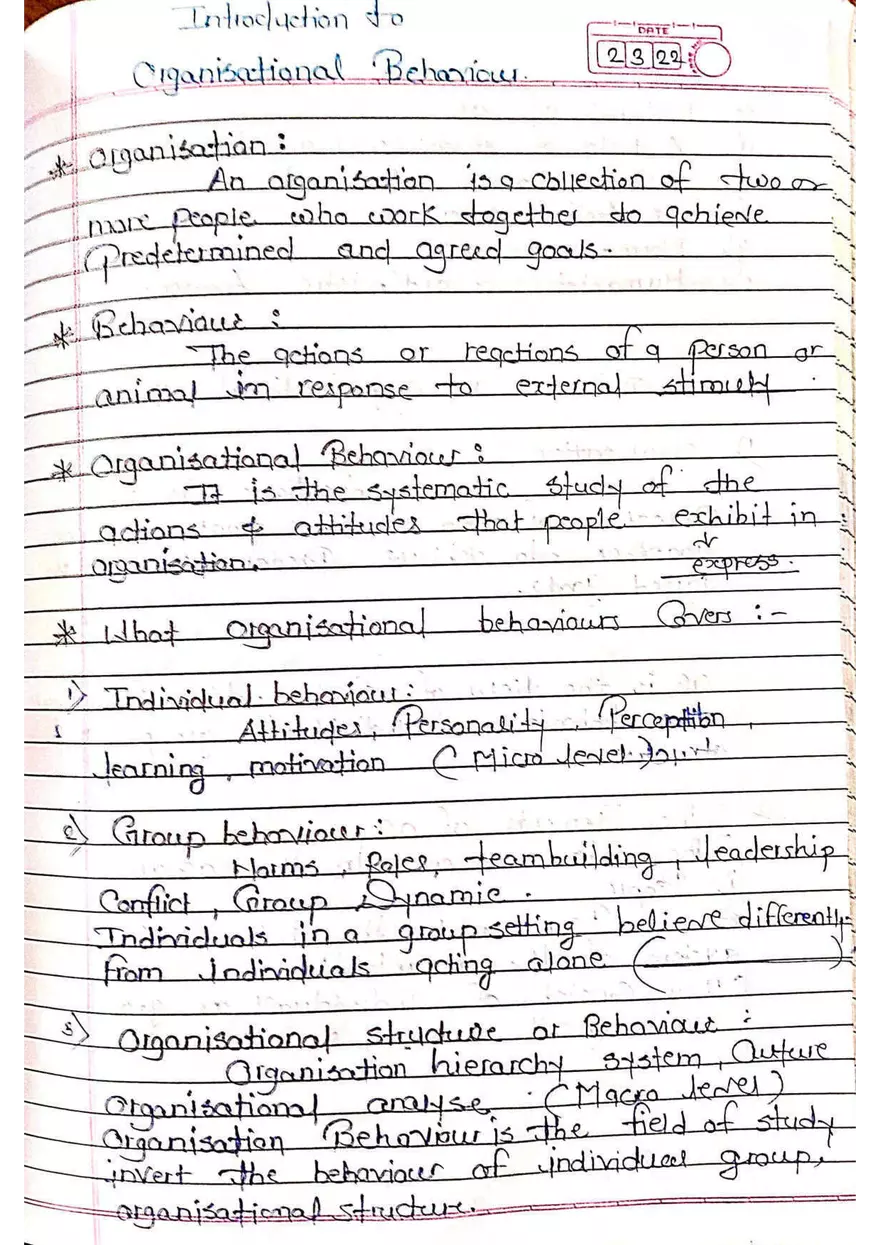 Introduction to
Organisational Behaviour.
DATE
2 3 22
* Organisation :
An organisation is a collection of two or
more people who work together to achieve
Predetermined and agreed goals.
* Behaviour :
The actions or reactions of a person or
animal in response to external stimuli
* Organisational Behaviour :
It is the systematic study of the
actions & attitudes that people exhibit in
organisation.
↓
express.
* What organisational behaviours Covers :-
1) Individual behaviour :
Attitudes, Personality, Perception,
learning, motivation (Micro level)
2) Group behaviour :
Norms, Roles, teambuilding, leadership
Conflict, Group Dynamic.
Individuals in a group setting believe differently
from individuals acting alone ( )
3) Organisational structure or Behaviour :
Organisation hierarchy system, Culture
Organisational analyse. (Macro level)
Organisation Behaviour is the field of study
invert the behaviour of individual group,
organisational structure.